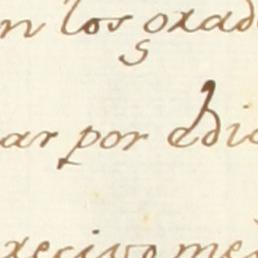 n los oxad
s
ar por edic
xecivo me